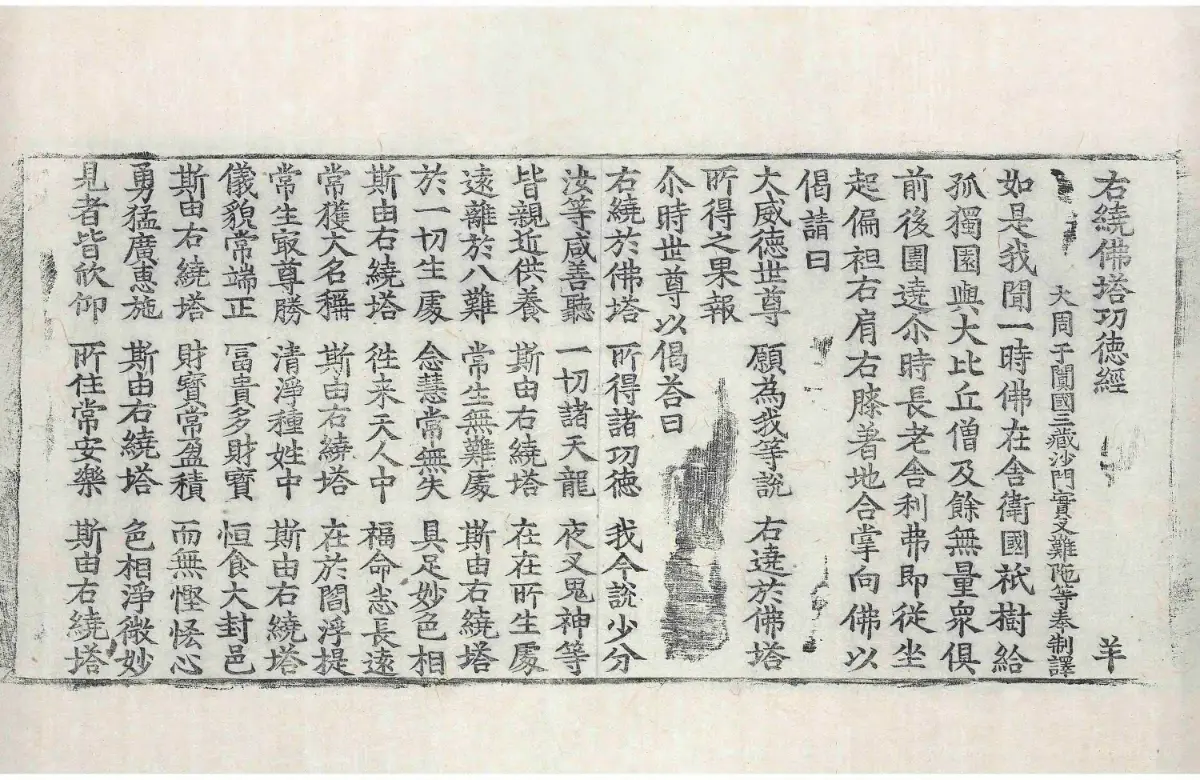 右繞佛塔功徳經 羊
大周 于闐國三藏沙門實叉難陁等奉制譯
如是我聞一時佛在舎衛國祇樹給
孤獨園與大比丘僧及餘無量衆俱
前後圍遶尒時長老舎利弗即從坐
起偏袒右肩右膝著地合掌向佛以
偈請曰
大威德世尊 願為我等說 右遶於佛塔
所得之果報
尒時世尊以偈荅曰
右繞於佛塔 所得諸功德 我今說少分
汝等咸善聽 一切諸天龍 夜叉鬼神等
皆親近供養 斯由右繞塔 在在所生處
遠離於八難 常生無難處 斯由右繞塔
於一切生處 念慧常無失 具足妙色相
斯由右繞塔 往来天人中 福命悉長遠
常獲大名稱 斯由右繞塔 在於閻浮提
常生㝡尊勝 清淨種姓中 斯由右繞塔
儀貌常端正 冨貴多財寶 恒食大封邑
斯由右繞塔 財寶常盈積 而無慳悋心
勇猛廣惠施 斯由右繞塔 色相淨微妙
見者皆欣仰 所住常安樂 斯由右繞塔